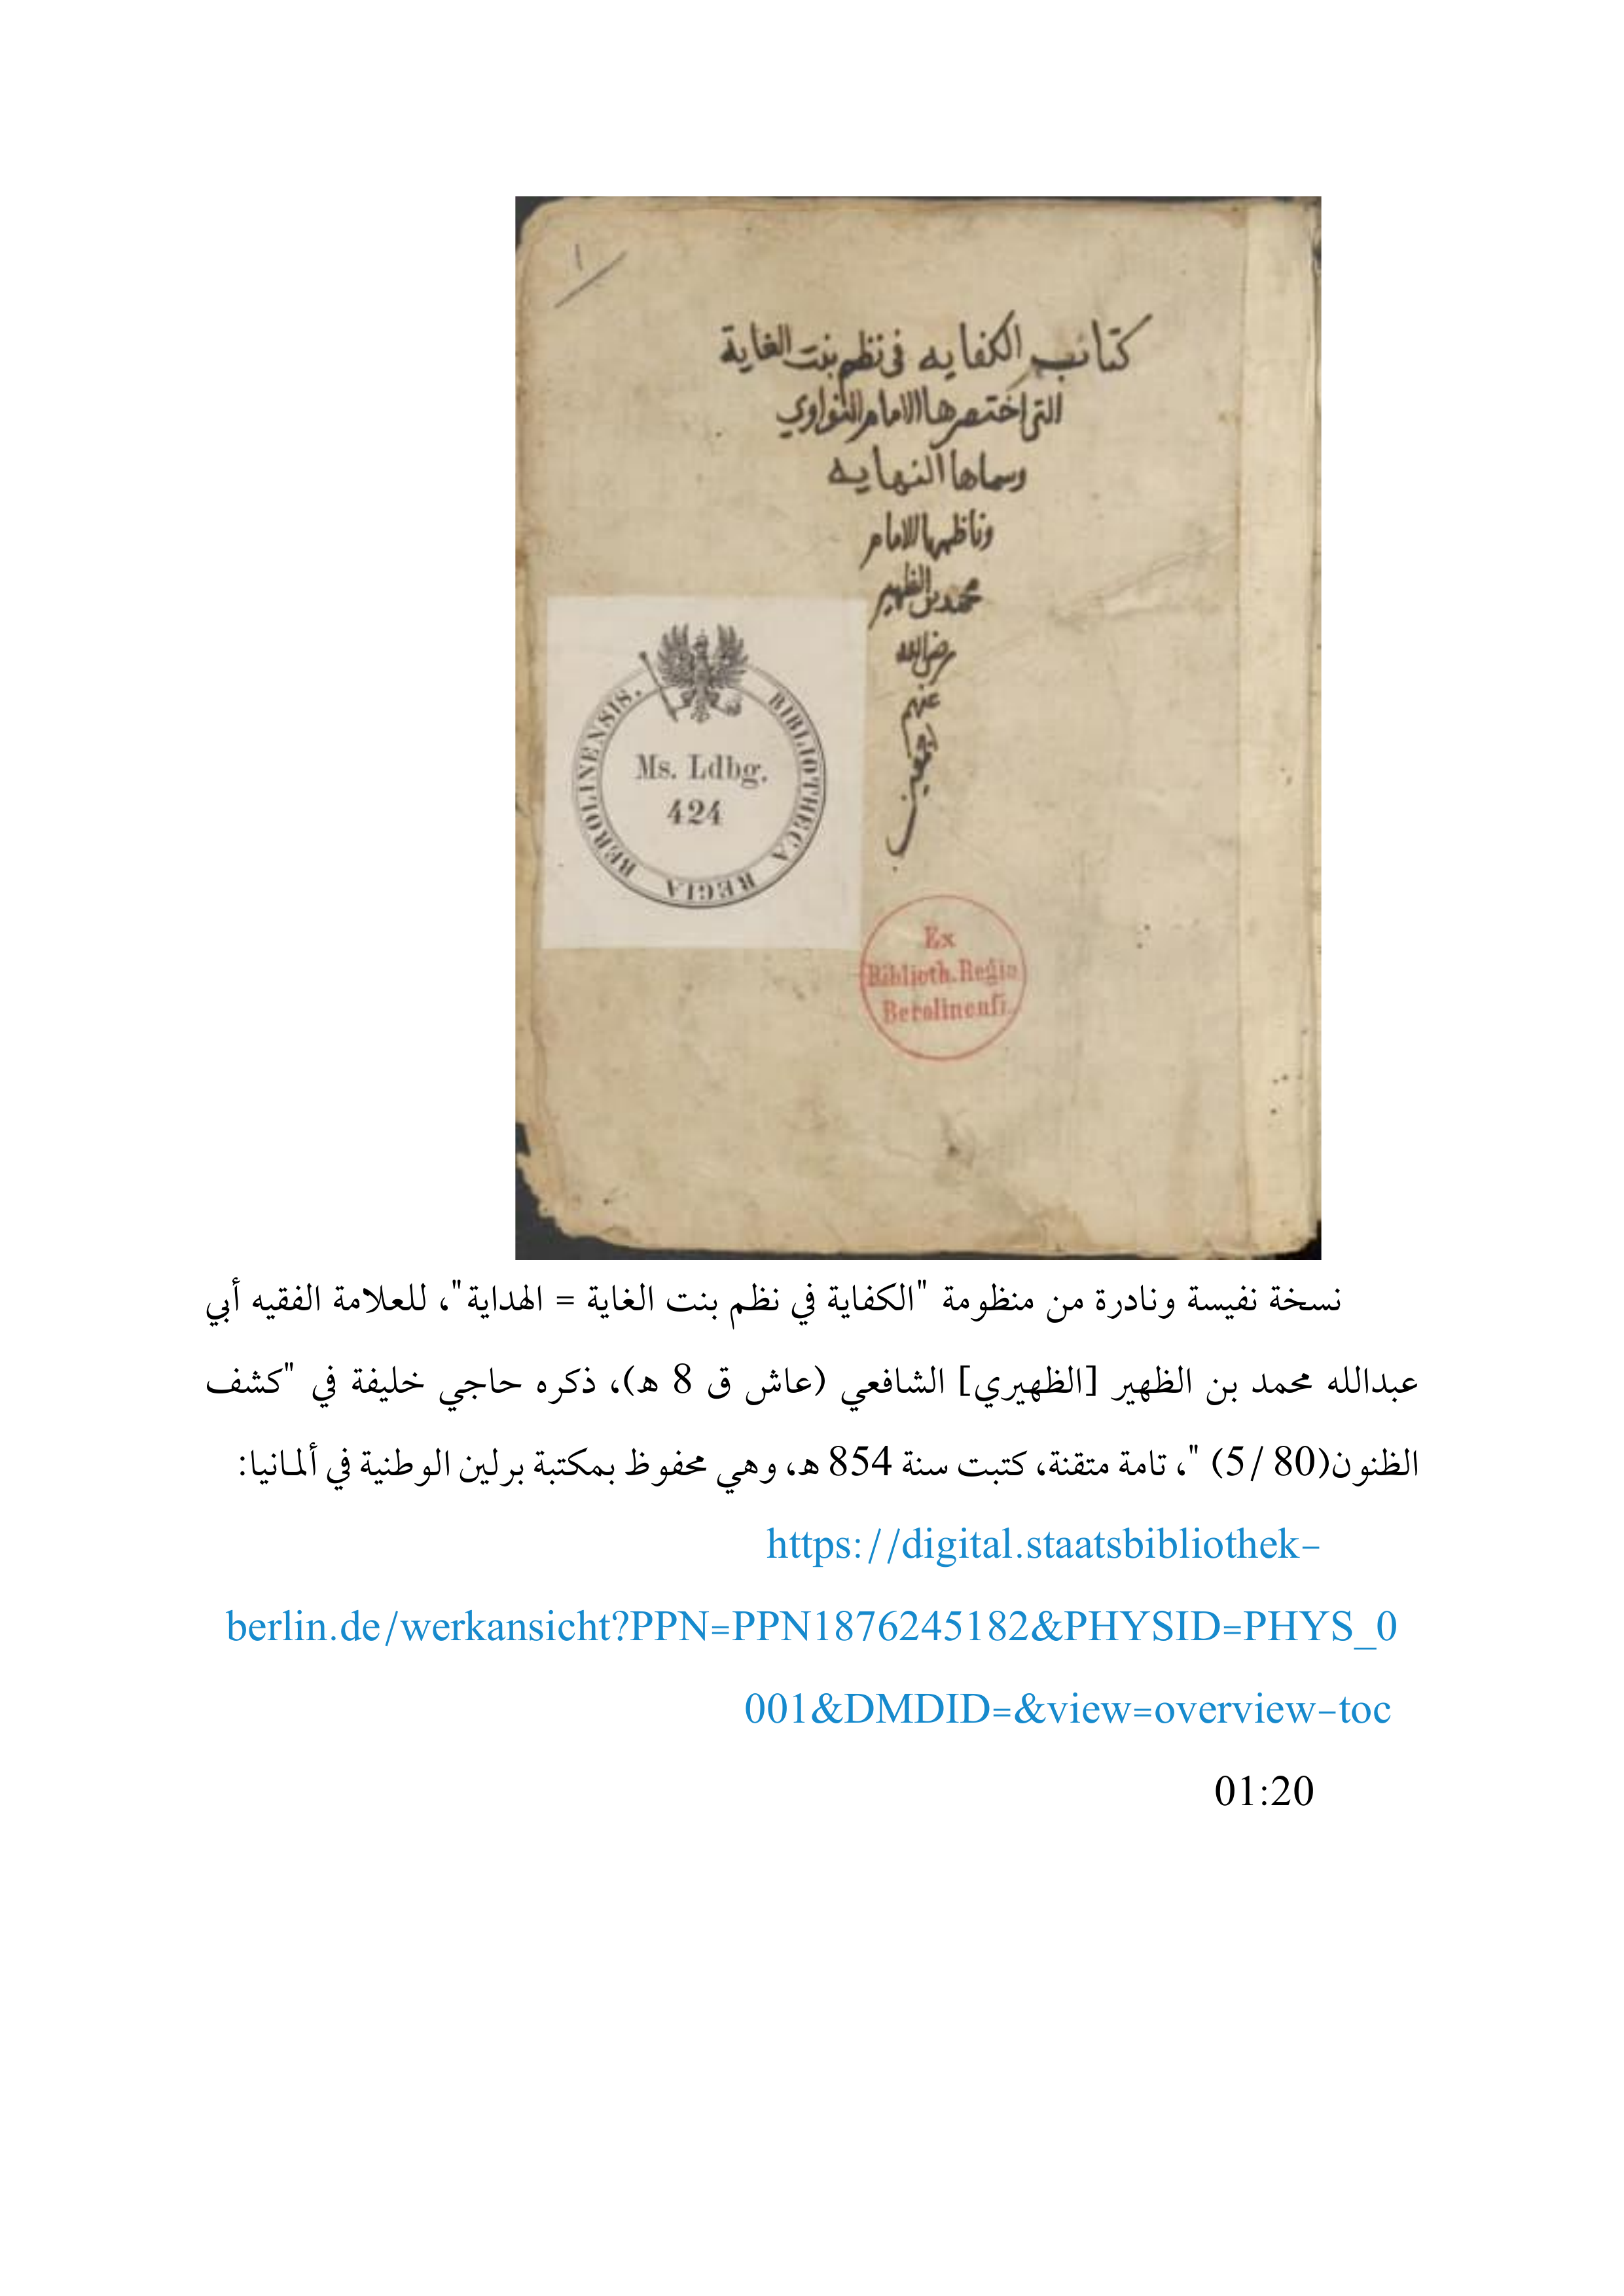 ١
كتاب الكفايه فى نظم بنت الغاية
التى اختصرها الامام النواوي
وسماها النهايه
وناظمها الامام
محمد بن الظهير
رضى الله
عنهم
اجمعين
BIBLIOTHECA REGIA BEROLINENSIS.
Ms. Ldbg.
424
Ex
Biblioth. Regia
Berolinensi.
نسخة نفيسة ونادرة من منظومة "الكفاية في نظم بنت الغاية = الهداية"، للعلامة الفقيه أبي
عبدالله محمد بن الظهير [الظهيري] الشافعي (عاش ق 8 ه)، ذكره حاجي خليفة في "كشف
الظنون(80 /5) "، تامة متقنة، كتبت سنة 854 ه، وهي محفوظ بمكتبة برلين الوطنية في ألمانيا:
https://digital.staatsbibliothek-
berlin.de/werkansicht?PPN=PPN1876245182&PHYSID=PHYS_0
001&DMDID=&view=overview-toc
01:20